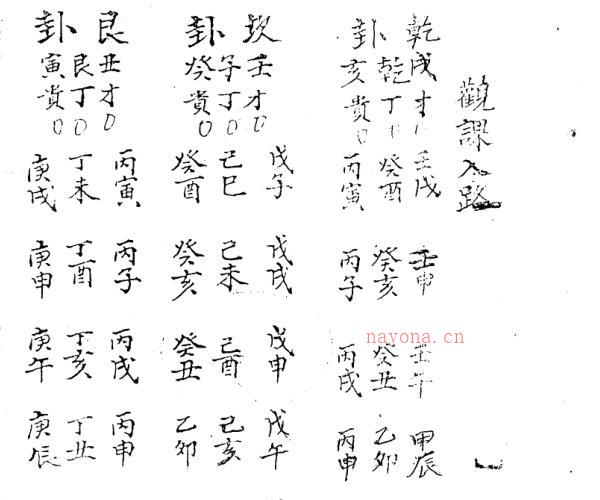 觀課入路
乾戌才0壬戌壬申壬午甲辰
乾丁0癸酉癸亥癸丑乙卯
卦亥貴0丙寅丙子丙戌丙申
坎壬才0戊子戊戌戊申戊午
子丁0己巳己未己酉己亥
卦癸貴0癸酉癸亥癸丑乙卯
艮丑才0丙寅丙子丙戌丙申
艮丁0丁未丁酉丁亥丁丑
卦寅貴0庚戌庚申庚午庚辰
nayona.cn